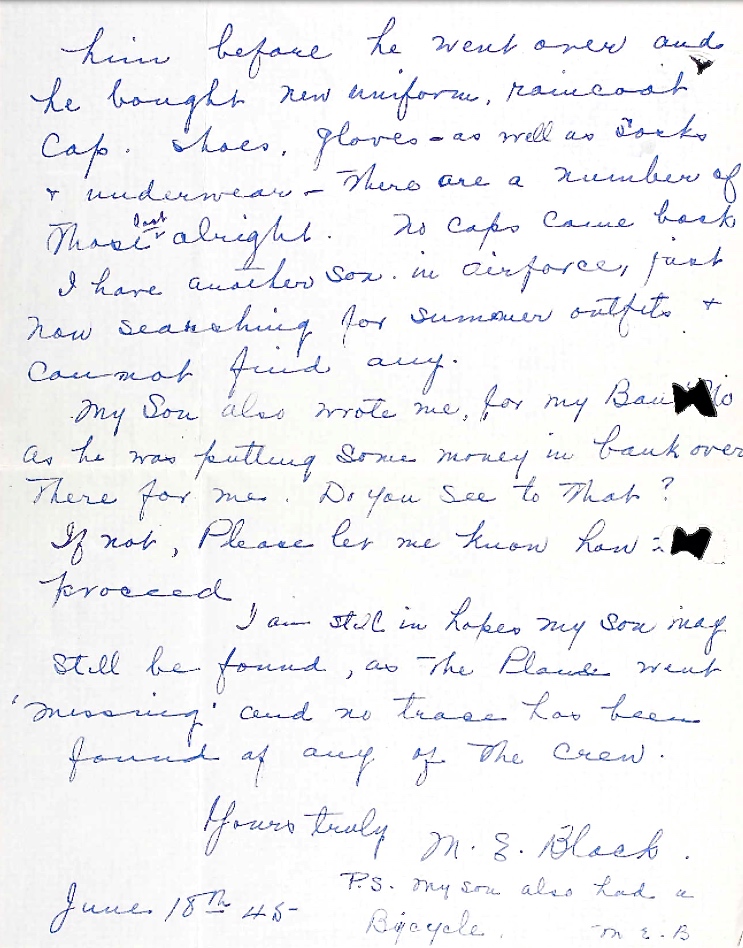 him before he went over and
he bought new uniform, raincoat
Cap. shoes, gloves - as well as Socks
+ underwear - There are a number of
Those last alright. No caps came back
I have another Son. in airforce, just
now searching for summer outfits +
Cannot find any.
My Son also wrote me, for my No
as he was putting some money in bank over
There for me. Do you See to That?
If not, Please let me know how
proceed
I am still in hopes my son may
Still be found, as The Plane went
'missing' and no trace has been
found of any of The Crew.
Yours truly
M. E. Black.
P.S. my son also had a
Bicycle. M E. B
June 18th 45-